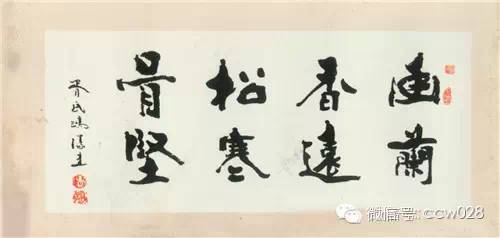 幽蘭
香遠
松寒
骨堅
微信号: ccw028